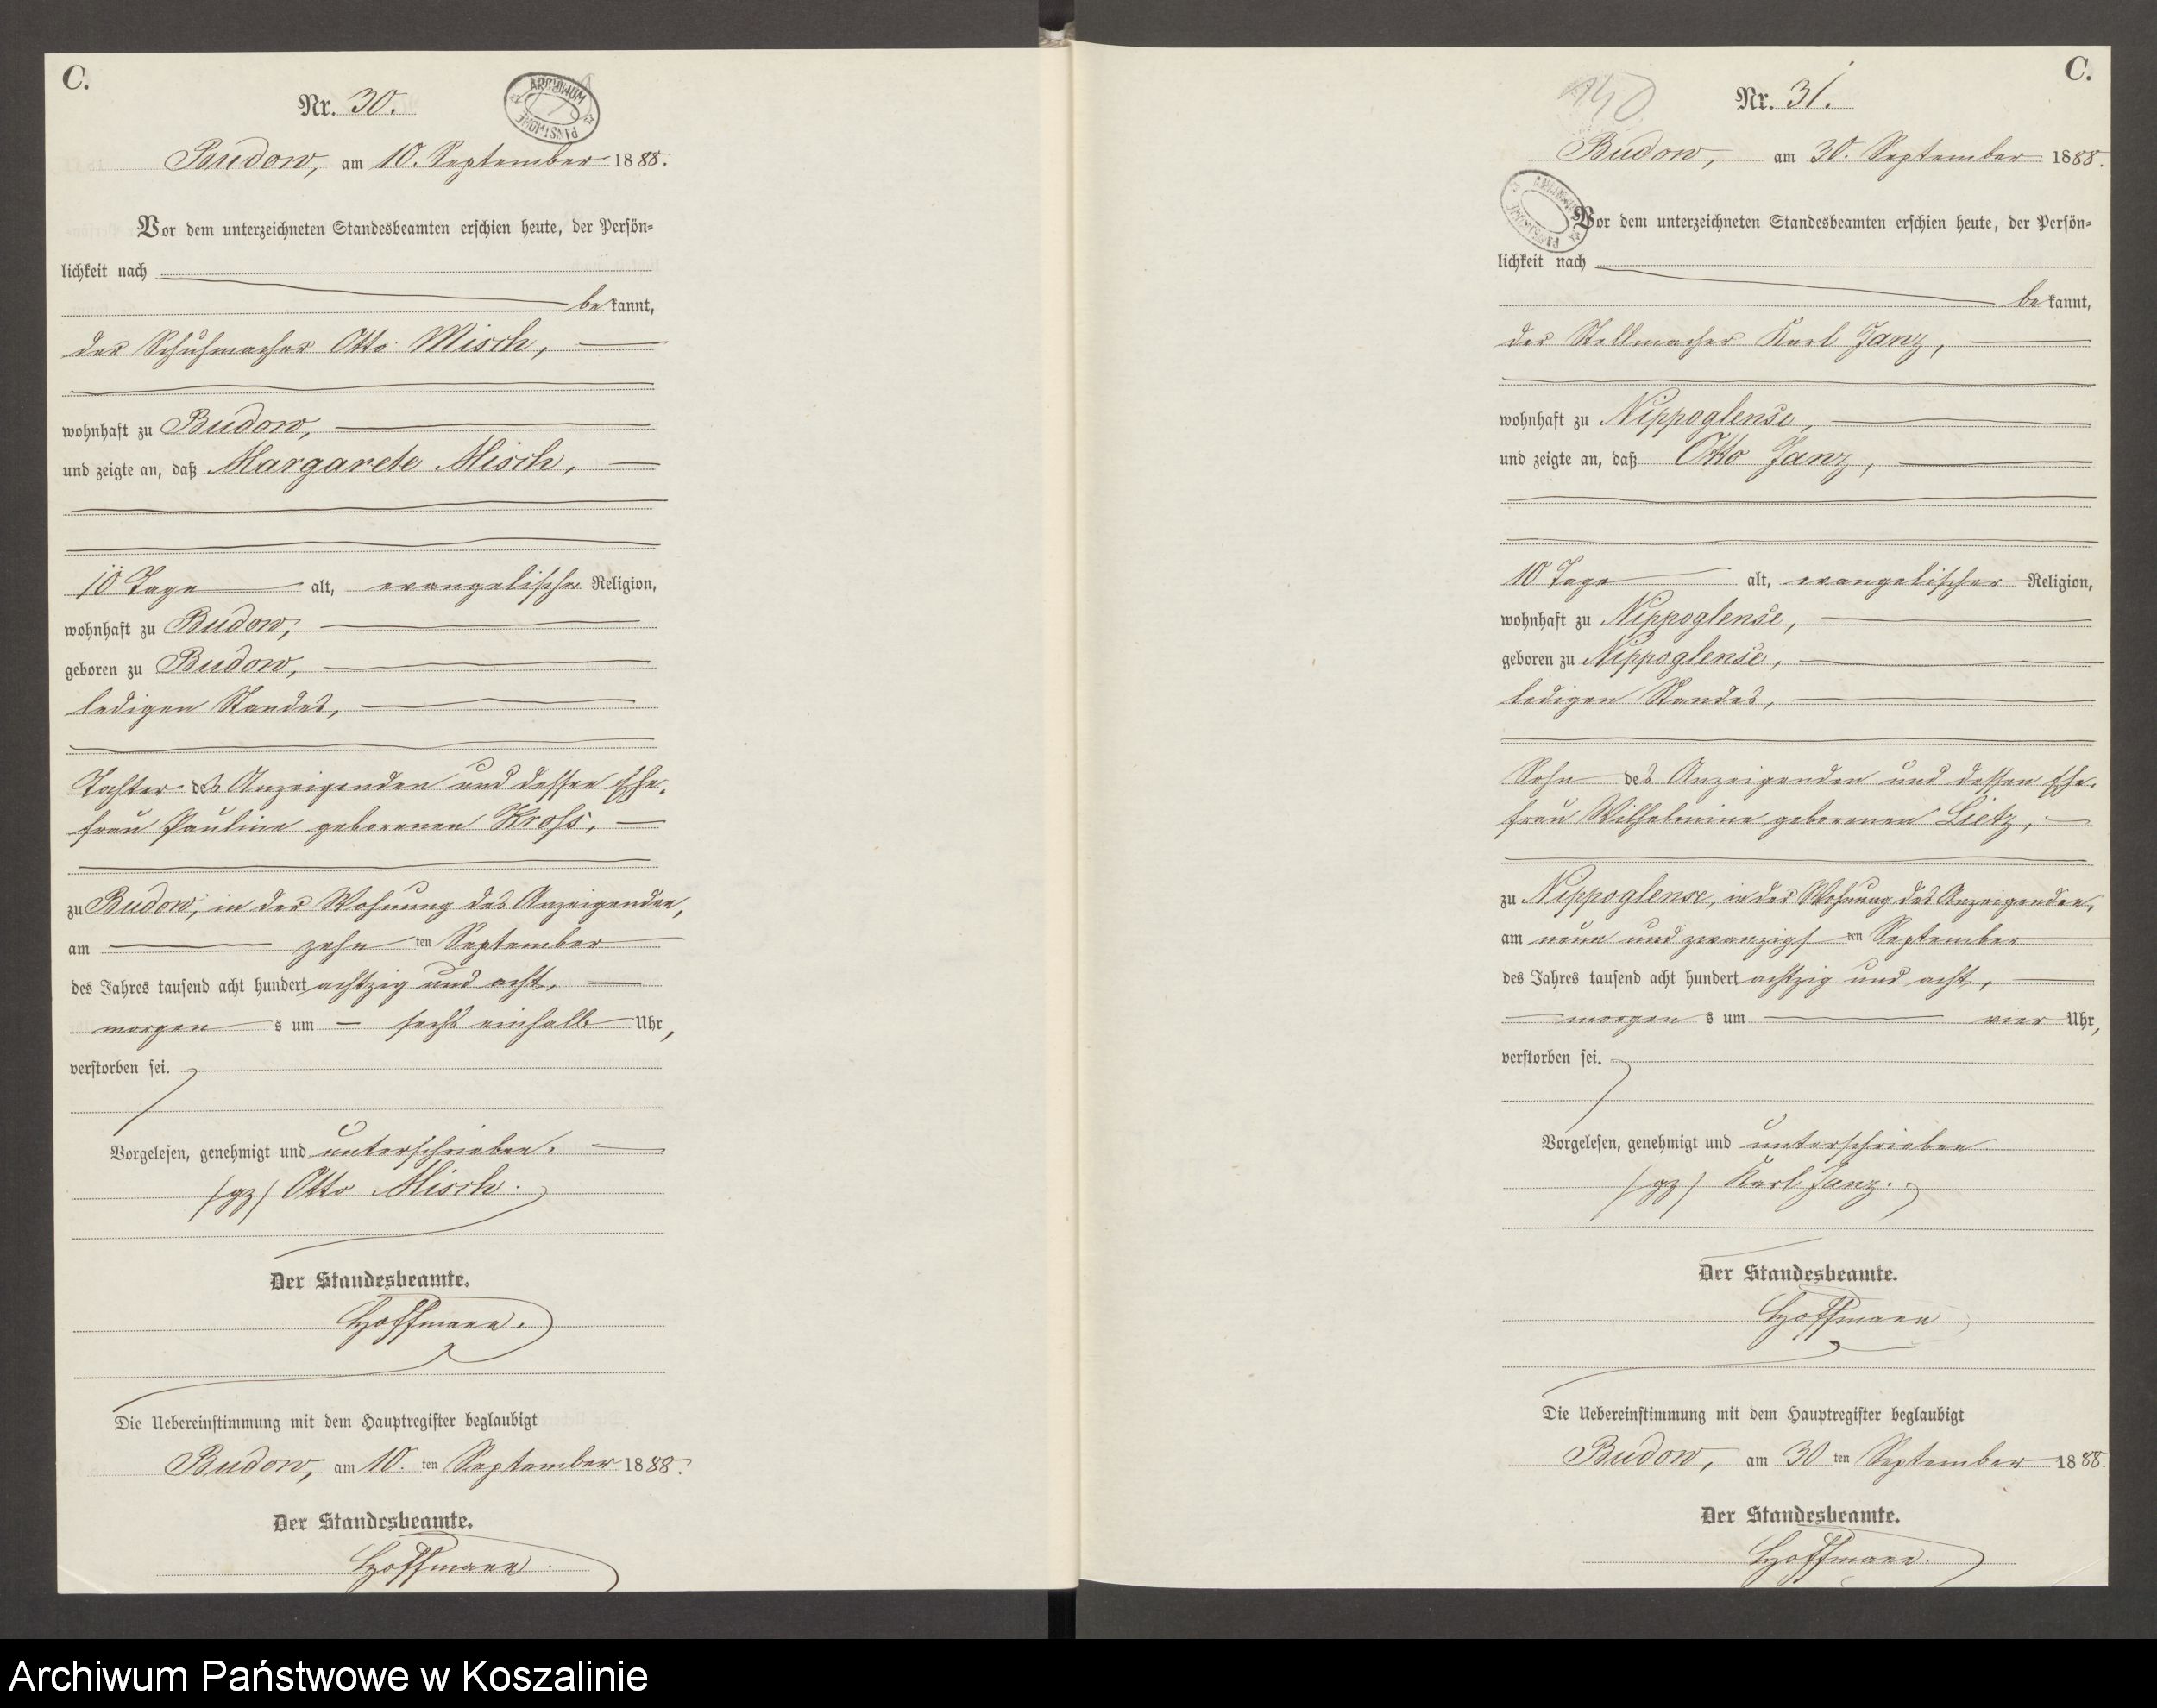 C.
Nr. 30.
ARCHIWUM PAŃSTWOWE
Budow, am 10. September 1888.
Vor dem unterzeichneten Standesbeamten erschien heute, der Persön-
lichkeit nach
bekannt,
der Schuhmacher Otto Misch,
wohnhaft zu Budow,
und zeigte an, daß Margarete Misch,
10 Tage alt, evangelischer Religion,
wohnhaft zu Budow,
geboren zu Budow,
ledigen Standes,
Tochter des Anzeigenden und dessen Ehe-
frau Pauline geborenen Kross,
zu Budow, in der Wohnung des Anzeigenden,
am zehn ten September
des Jahres tausend acht hundert achtzig und acht,
morgens um sechs einhalb Uhr,
verstorben sei.
Vorgelesen, genehmigt und unterschrieben.
(gz) Otto Misch.
Der Standesbeamte.
Hoffmann.
Die Uebereinstimmung mit dem Hauptregister beglaubigt
Budow, am 10. ten September 1888.
Der Standesbeamte.
Hoffmann.
C.
Nr. 31.
Budow, am 30. September 1888.
ARCHIWUM PAŃSTWOWE
Vor dem unterzeichneten Standesbeamten erschien heute, der Persön-
lichkeit nach
bekannt,
der Stellmacher Karl Janz,
wohnhaft zu Nippoglense,
und zeigte an, daß Otto Janz,
10 Tage alt, evangelischer Religion,
wohnhaft zu Nippoglense,
geboren zu Nippoglense,
ledigen Standes,
Sohn des Anzeigenden und dessen Ehe-
frau Wilhelmine geborenen Lietz,
zu Nippoglense, in der Wohnung des Anzeigenden,
am neun und zwanzigsten September
des Jahres tausend acht hundert achtzig und acht,
morgens um vier Uhr,
verstorben sei.
Vorgelesen, genehmigt und unterschrieben
(gz) Karl Janz.
Der Standesbeamte.
Hoffmann
Die Uebereinstimmung mit dem Hauptregister beglaubigt
Budow, am 30 ten September 1888.
Der Standesbeamte.
Hoffmann.
Archiwum Państwowe w Koszalinie